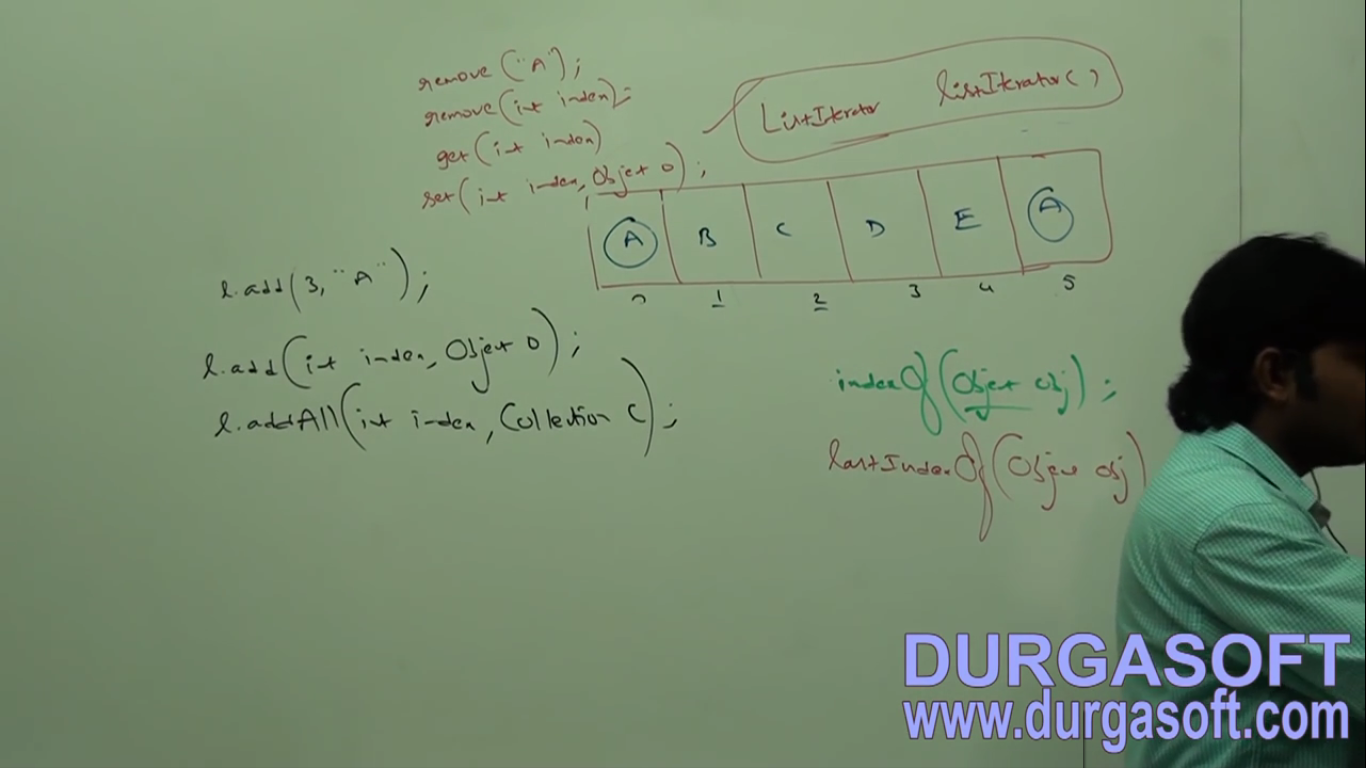 remove("A");
remove(int index);
get(int index)
set(int index, Object o);
ListIterator listIterator()
A B C D E A
0 1 2 3 4 5
l.add(3, "A");
l.add(int index, Object o);
l.addAll(int index, Collection c);
indexOf(Object obj);
lastIndexOf(Object obj)
DURGASOFT
www.durgasoft.com